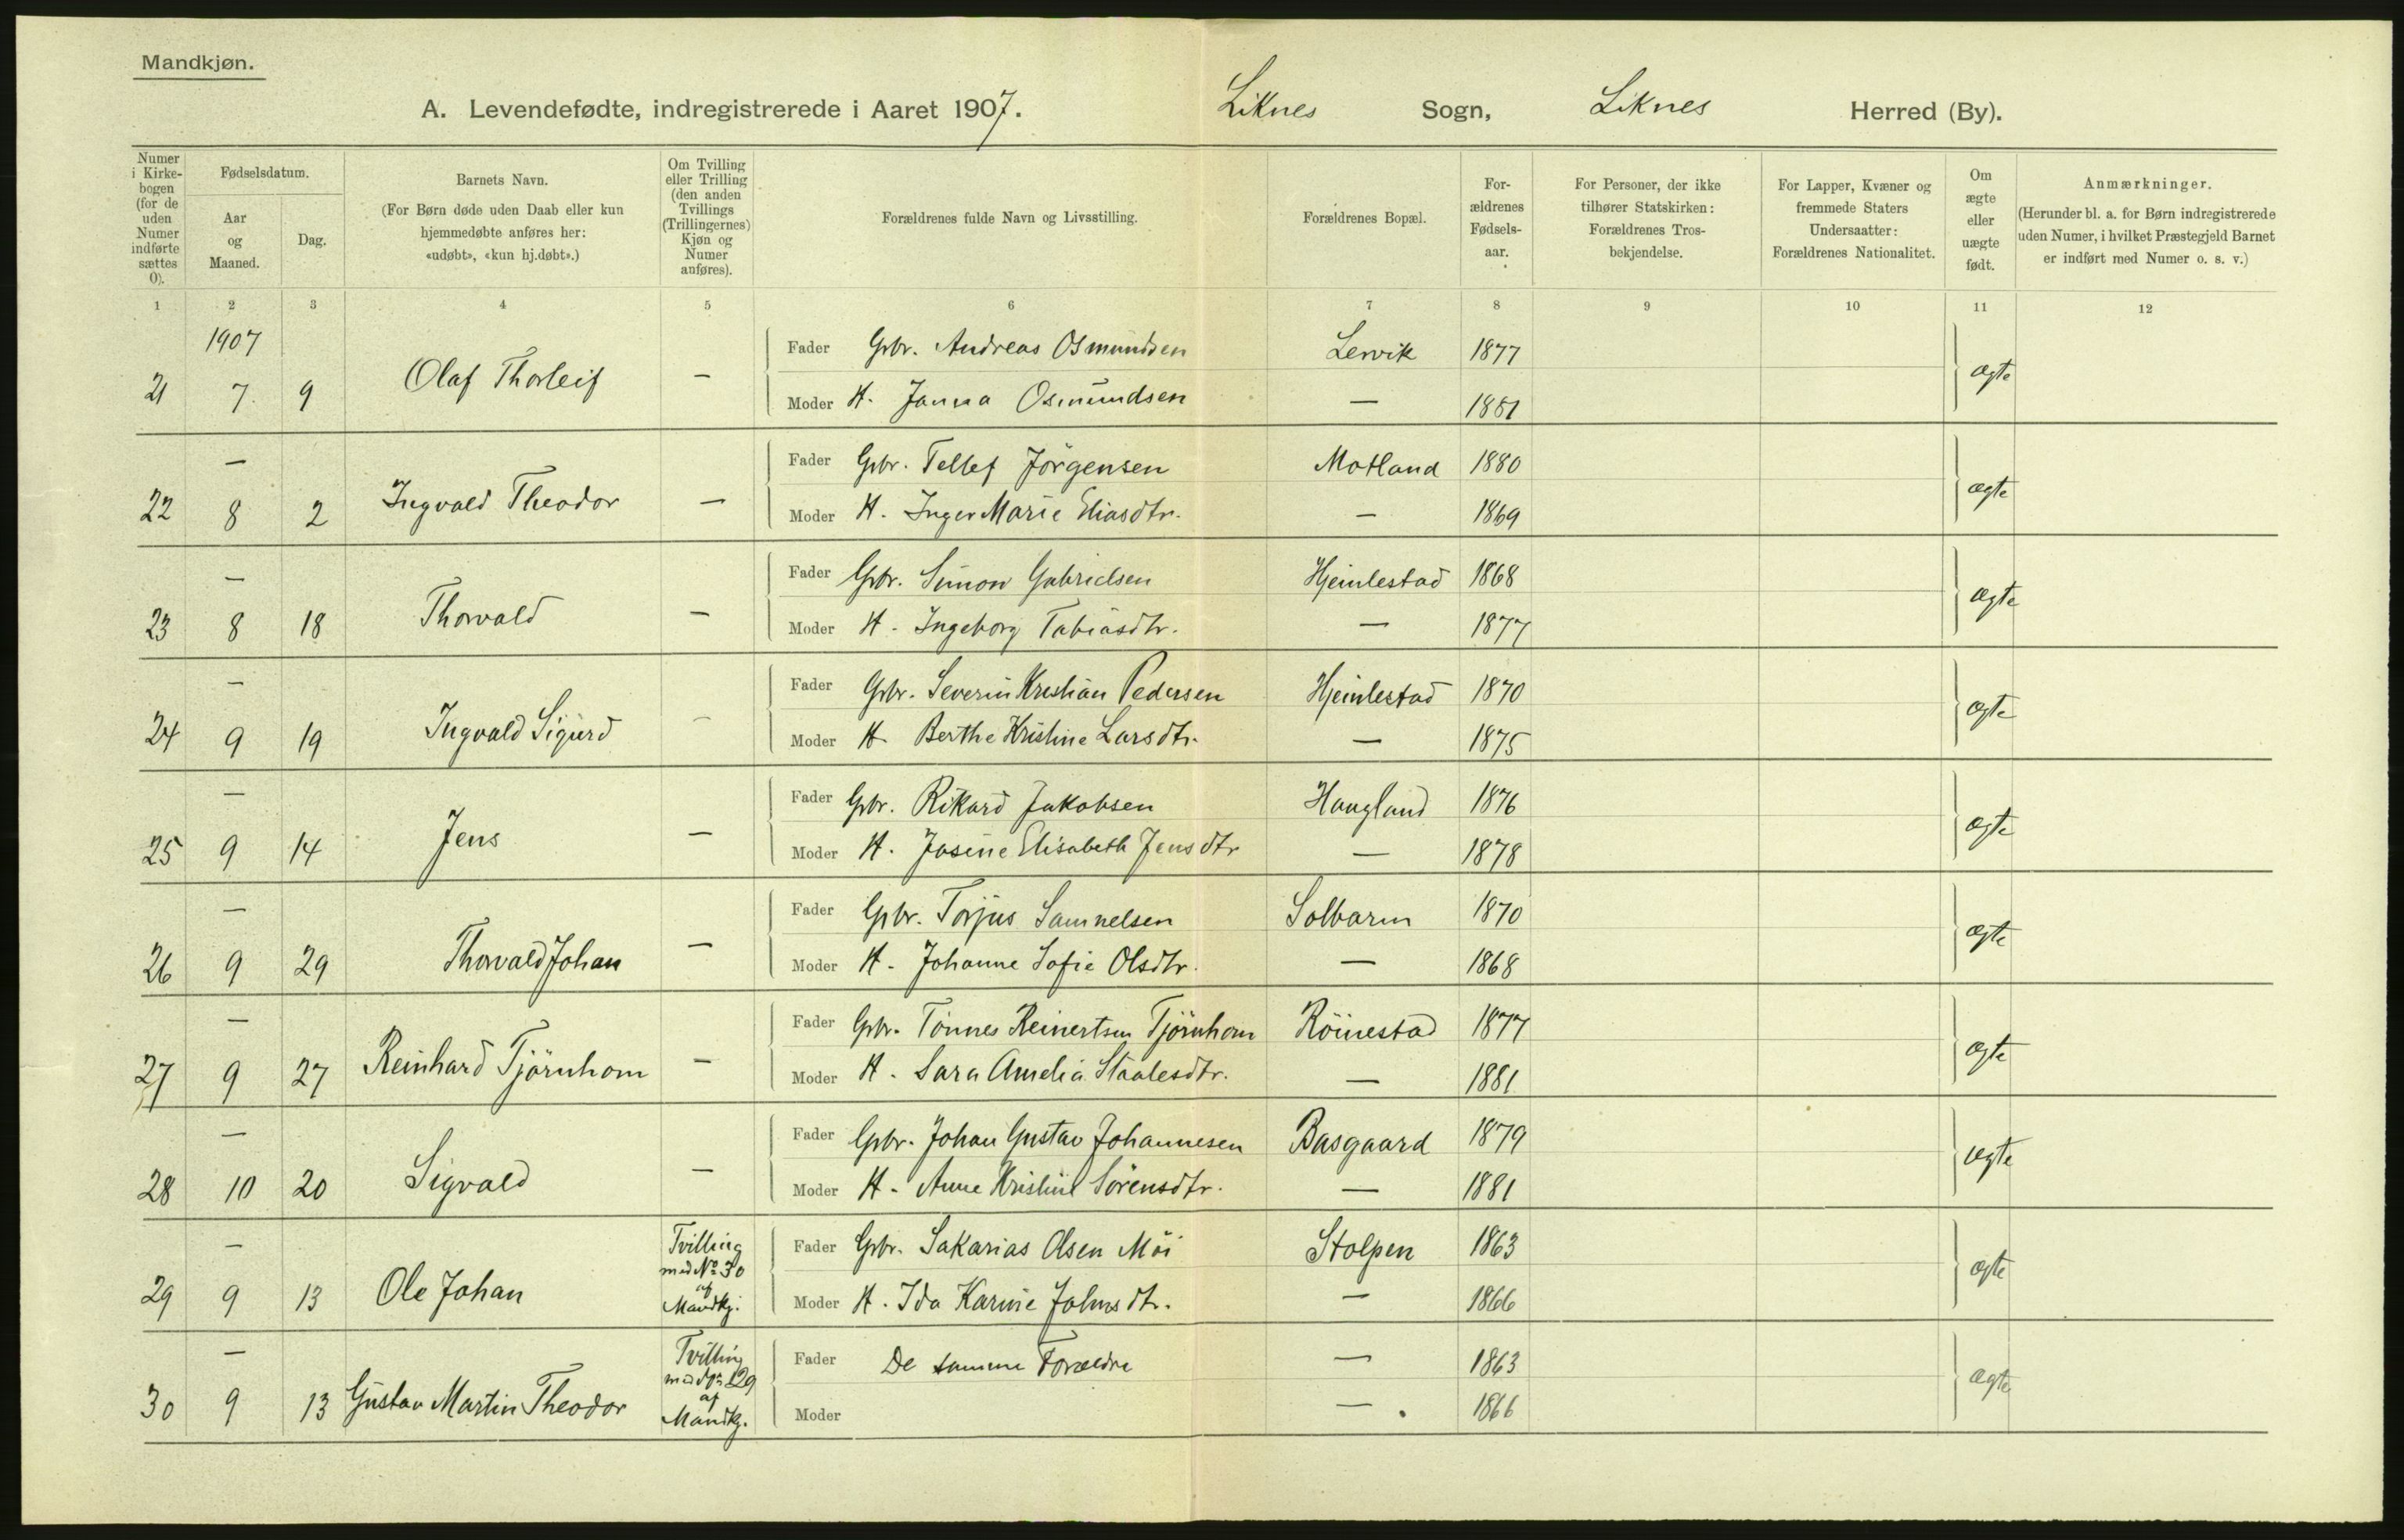 Mandkjøn.
A. Levendefødte, indregistrerede i Aaret 1907. Liknes Sogn, Liknes Herred (By).
Numer i Kirkebogen (for de uden Numer indførte sættes 0).
Fødselsdatum.
Aar og Maaned.
Dag.
Barnets Navn.
(For Børn døde uden Daab eller kun hjemmedøbte anføres her: «udøbt», «kun hj.døbt».)
Om Tvilling eller Trilling (den anden Tvillings (Trillingernes) Kjøn og Numer anføres).
Forældrenes fulde Navn og Livsstilling.
Forældrenes Bopæl.
Forældrenes Fødselsaar.
For Personer, der ikke tilhører Statskirken: Forældrenes Trosbekjendelse.
For Lapper, Kvæner og fremmede Staters Undersaatter: Forældrenes Nationalitet.
Om ægte eller uægte født.
Anmærkninger.
(Herunder bl. a. for Børn indregistrerede uden Numer, i hvilket Præstegjeld Barnet er indført med Numer o. s. v.)
1 2 3 4 5 6 7 8 9 10 11 12
1907
21 7 9 Olaf Thorleif — Fader Gbr. Andreas Osmundsen Lervik 1877 ægte
Moder H. Janna Osmundsen — 1881
—
22 8 2 Ingvald Theodor — Fader Gbr. Tellef Jörgensen Motland 1880 ægte
Moder H. Inger Marie Eliasdtr. — 1869
—
23 8 18 Thorvald — Fader Gbr. Simon Gabrielsen Hjemlestad 1868 ægte
Moder H. Ingeborg Tobiasdtr. — 1877
—
24 9 19 Ingvald Sigurd — Fader Gbr. Severin Kristian Pedersen Hjemlestad 1870 ægte
Moder H. Berthe Kristine Larsdtr. — 1875
—
25 9 14 Jens — Fader Gbr. Rikard Jakobsen Haugland 1876 ægte
Moder H. Josine Elisabeth Jensdtr — 1878
—
26 9 29 Thorvald Johan — Fader Gbr. Torjus Samuelsen 1870 ægte
Moder H. Johanne Sofie Olsdtr. — 1868
—
27 9 27 Reinhard Tjörnhom — Fader Gbr. Tönnes Reinertsen Tjörnhom Röinestad 1877 ægte
Moder H. Sara Amelia Staalesdtr. — 1881
—
28 10 20 Sigvald — Fader Gbr. Johan Gustav Johannesen Basgaard 1879 ægte
Moder H. Anne Kristine Sörensdtr. — 1881
—
29 9 13 Ole Johan Tvilling med No 30 af Mandkj. Fader Gbr. Sakarias Olsen Möi Stolpen 1863 ægte
Moder H. Ida Karine Johnsdtr. — 1866
—
30 9 13 Gustav Martin Theodor Tvilling med No 29 af Mandkj. Fader De samme Forældre — 1863 ægte
Moder — 1866